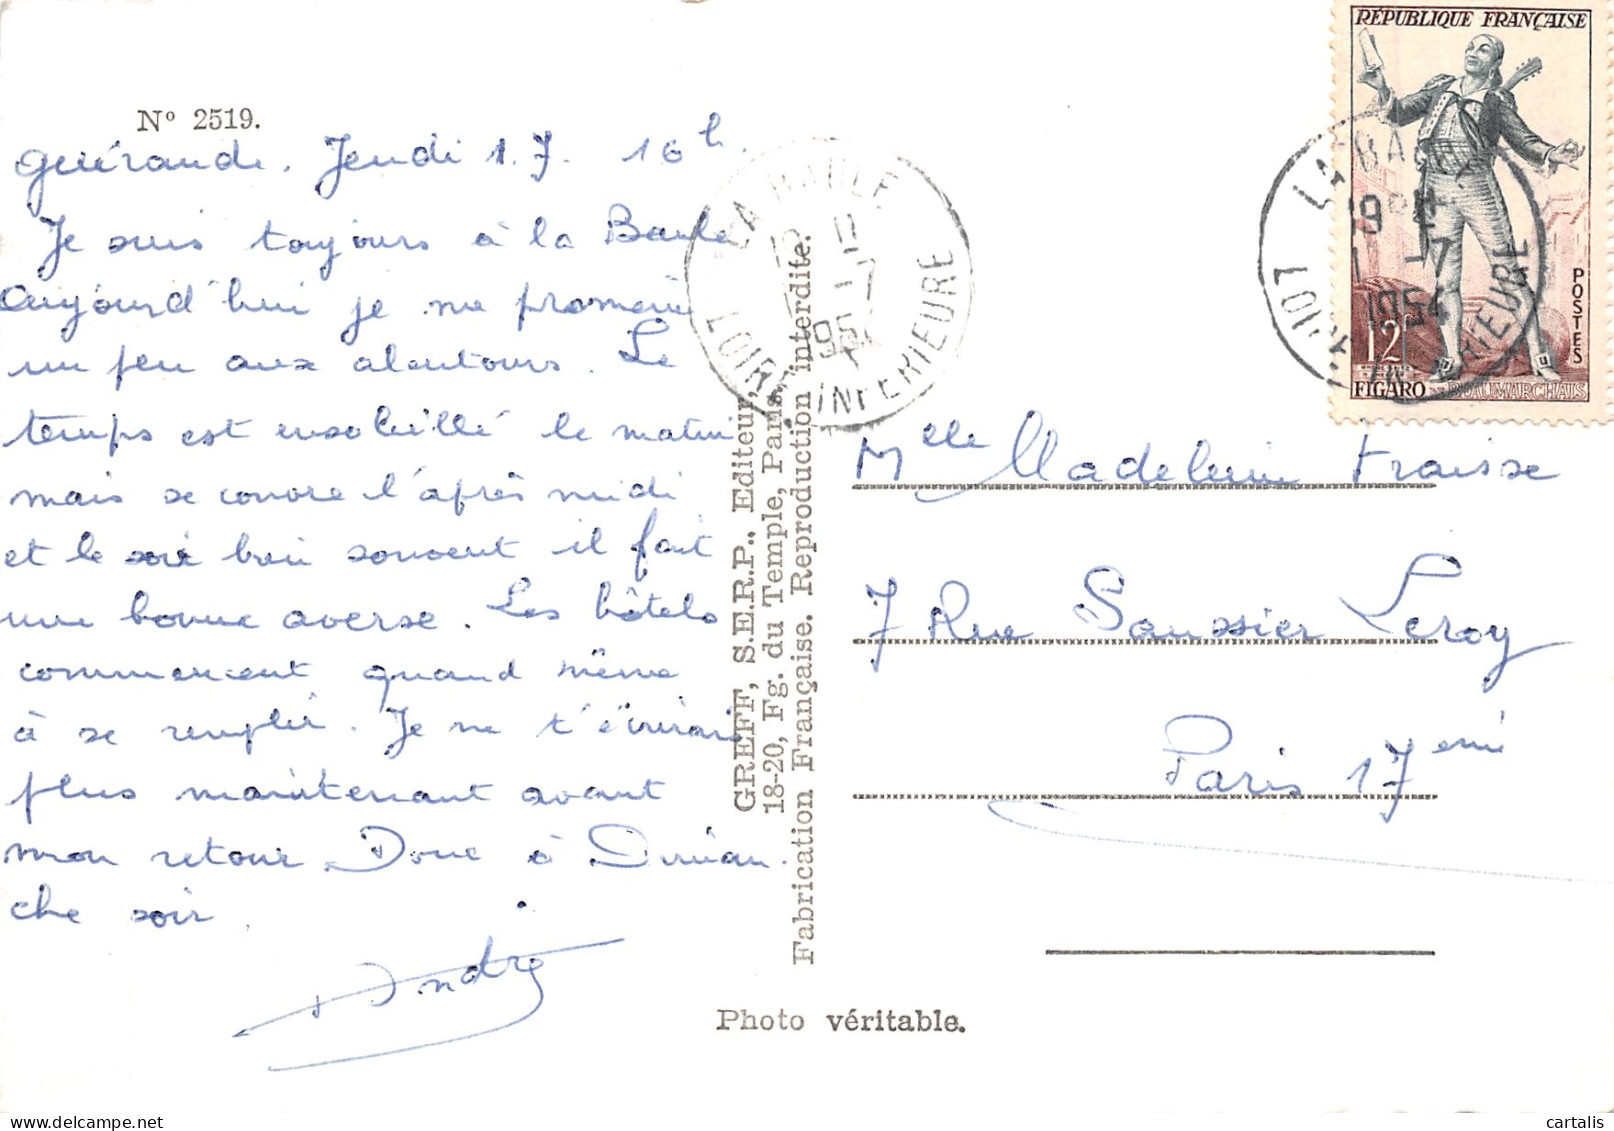 N° 2519.
Guérande. Jeudi 1.7. 16h.
Je suis toujours à la Baule
aujourd'hui je me promène
un peu aux alentours. Le
temps est ensoleillé le matin
mais se couvre l'après midi
et le soir bien souvent il fait
une bonne averse. Les hôtels
commencent quand même
à se remplir. Je ne t'écrirais
plus maintenant avant
mon retour Donc à Diman.
che soir.
André
GREFF, S.E.R.P., Editeur,
18-20, Fg. du Temple, Paris.
Fabrication Française. Reproduction interdite.
Photo véritable.
LA BAULE
1954
LOIRE INFERIEURE
RÉPUBLIQUE FRANÇAISE
POSTES
12F
FIGARO BEAUMARCHAIS
LA BAULE
19H
1-7
1954
LOIRE INFERIEURE
Melle Madeleine Fraisse
7 Rue Saussier Leroy
Paris 17eme
cartalis
www.delcampe.net